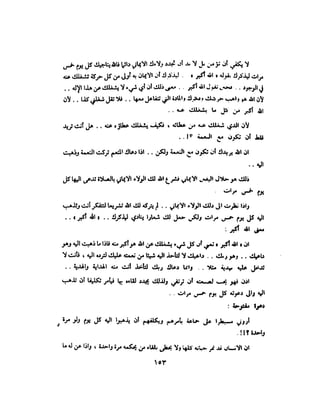 لا يكفي أن تؤمن بل لا بد أن تجدد ولاءك الإيماني دائماً فالله يناجيك كل يوم خمس
مرات ليذكرك بقوله « الله أكبر » .. ليذكرك أن الايمان به أولى من كل حركة تشغلك عنه
في الوجود .. فحين نقول الله أكبر .. فمعنى ذلك أن أي شيء لا يشغلك عن هذا الإله ..
لأن الله هو واهب حركتك وفكرك والمادة التي تتفاعل معها .. فلا تقل شغلني كذا .. لأن
الله أكبر من كل ما يشغلك عنه ..
لأن الذي شغلك عنه من عطائه ، فكيف يشغلك عطاؤه عنه .. هل أنت تريد
فقط أن تكون مع النعمة ؟! ..
ان الله يريدك أن تكون مع النعمة ولكن .. اذا دعاك المنعم تركت النعمة وذهبت
اليه ..
ذلك هو حلال اليقين الإيماني فشرع الله لك الولاء الإيماني بالصلاة تدعى اليها كل
يوم خمس مرات .
واذا نظرت الى ذلك الولاء الإيماني .. لم يتركه لك الله تشريعا لتتفكر أنت وتذهب
اليه كل يوم خمس مرات ولكن جعل لك شعارا ينادي ليذكرك .. « الله أكبر » ..
فمعنى الله أكبر :
ان « الله أكبر » تعني أن كل شيء يشغلك عن الله هو أكبر منه فاذا ما ذهبت اليه وهو
داعيك .. وهو ربك .. داعيك لا لتأخذ اليه شيئا من نعمته عليك لترده اليه ، فأنت لا
تدخل عليه بهدية مثلا .. وانما دعاك ربك لتأخذ أنت منه الهداية والهدية ..
اذن فهو يحب لصنعته أن ترتقي ولذلك يجدد لقاءه بها فيأمر تكليفا أن تذهب
اليه والى دعوته كل يوم خمس مرات ..
دعوة مفتوحة :
أروني مسيطرا على جماعة يأمرهم ويكلفهم أن يذهبوا اليه كل يوم ولو مرة
واحدة ؟!!
ان الانسان قد تمر حياته كلها ولا يحظى بلقاء من يحكمه مرة واحدة ، واذا عن له ما
١٥٣